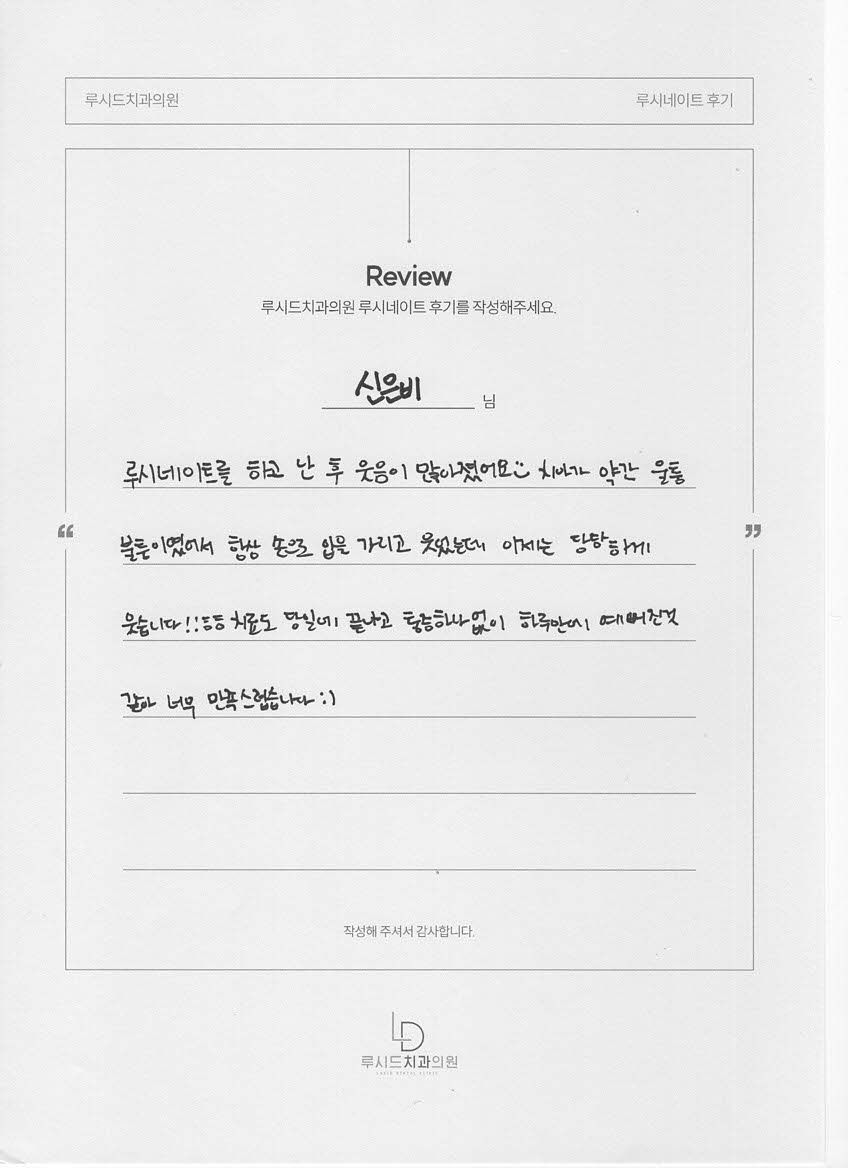 루시드치과의원
루시네이트 후기
Review
루시드치과의원 루시네이트 후기를 작성해주세요.
신은비 님
루시네이트를 하고 난 후 웃음이 많아졌어요 치아가 약간 울퉁
“ ”
불퉁이였어서 항상 손으로 입을 가리고 웃었는데 이제는 당당하게
웃습니다!! 치료도 당일에 끝나고 통증하나없이 하루만에 예뻐진것
같아 너무 만족스럽습니다 :)
작성해 주셔서 감사합니다.
LD
루시드치과의원
LUCID DENTAL CLINIC